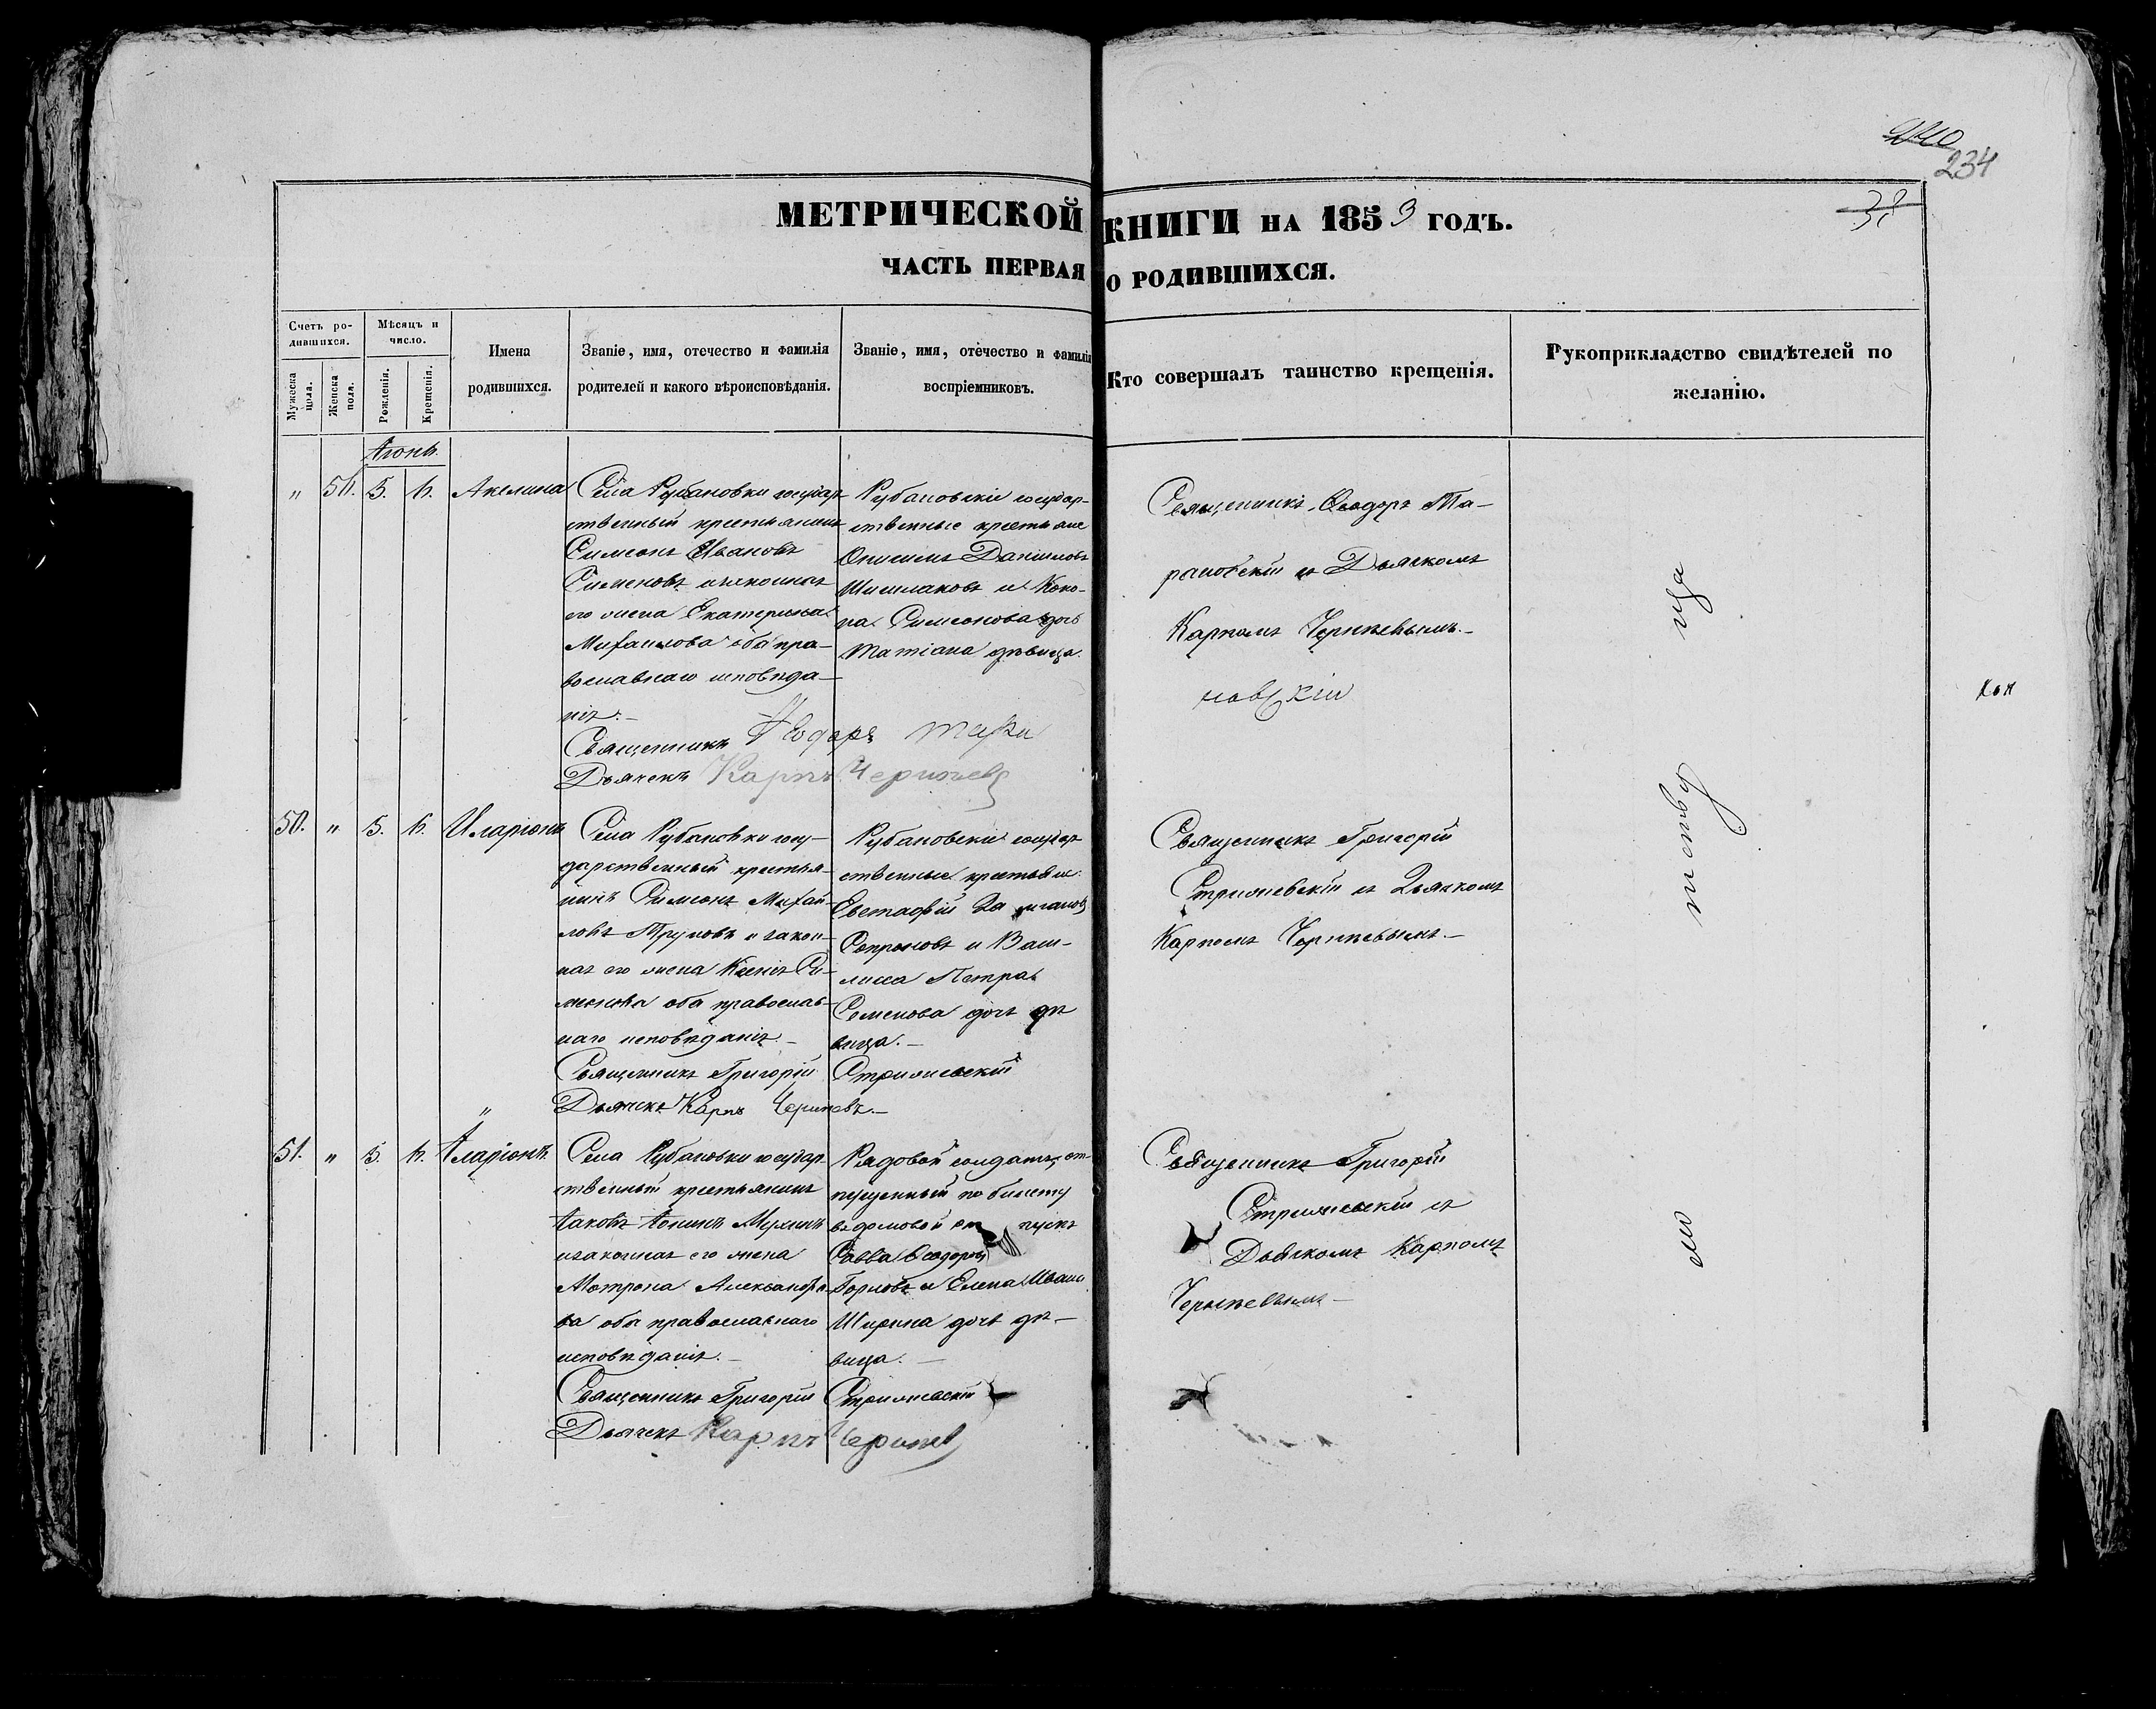 240
234
38
МЕТРИЧЕСКОЙ КНИГИ НА 1853 ГОДЪ.
ЧАСТЬ ПЕРВАЯ О РОДИВШИХСЯ.
Счетъ ро-
дившихся.
Мужеска
пола.
Женска
пола.
Мѣсяцъ и
число.
Рожденія.
Крещенія.
Имена
родившихся.
Званіе, имя, отечество и фамилія
родителей и какого вѣроисповѣданія.
Званіе, имя, отечество и фамилія
воспріемниковъ.
Кто совершалъ таинство крещенія.
Рукоприкладство свидѣтелей по
желанію.
Іюнь.
" 5. 6. Акелина
Села Рубановки государ
ственный крестьянинъ
Симеонъ Ивановъ
Сименовъ и законная
его жена Екатерина
Михаилова оба пра-
вославнаго исповѣда-
нія.-
Священникъ Ѳеодоръ Тара
Дьячекъ Карпъ Чериневъ
Рубановскіе государ-
ственные крестьяне
Онисимъ Даніиловъ
Шишлаковъ и
Симеонова дочь
Татіана дѣвица.
Священникъ Ѳеодоръ Та-
рановскій съ Дьячкомъ
Карпомъ Чериневымъ.-
новскій
50. " 5. 6. Иларіонъ
Села Рубановки госу-
дарственный крестья-
нинъ Симеонъ Михай-
ловъ Труновъ и закон-
ная его жена Ксенія Си-
меонова оба православ-
наго исповѣданія.-
Священникъ Григорій Стрижевскій
Дьячекъ Карпъ Чериневъ.-
Рубановскіе государ
ственные крестьяне
Евстафій
Сопроновъ и Васи-
лисса Петра
Семенова дочь дѣ
вица.-
Священникъ Григорій
Стрижевскій съ Дьячкомъ
Карпомъ Чериневымъ.-
51. " 5. 6. Іларіонъ
Села Рубановки государ
ственный крестьянинъ
Іаковъ Іонинъ Мухинъ
и законная его жена
Мотрона Александро
ва оба православнаго
исповѣданія.-
Священникъ Григорій Стрижевскій
Дьячекъ Карпъ Черинев
Рядовой солдатъ, от-
пущенный по билету
въ домовой отпускъ
Савва Ѳеодоровъ
Горловъ и Елена Иван
Ширина дочь дѣ-
вица.-
Священникъ Григорій
Стрижевскій съ
Дьячкомъ Карпомъ
Чериневымъ-